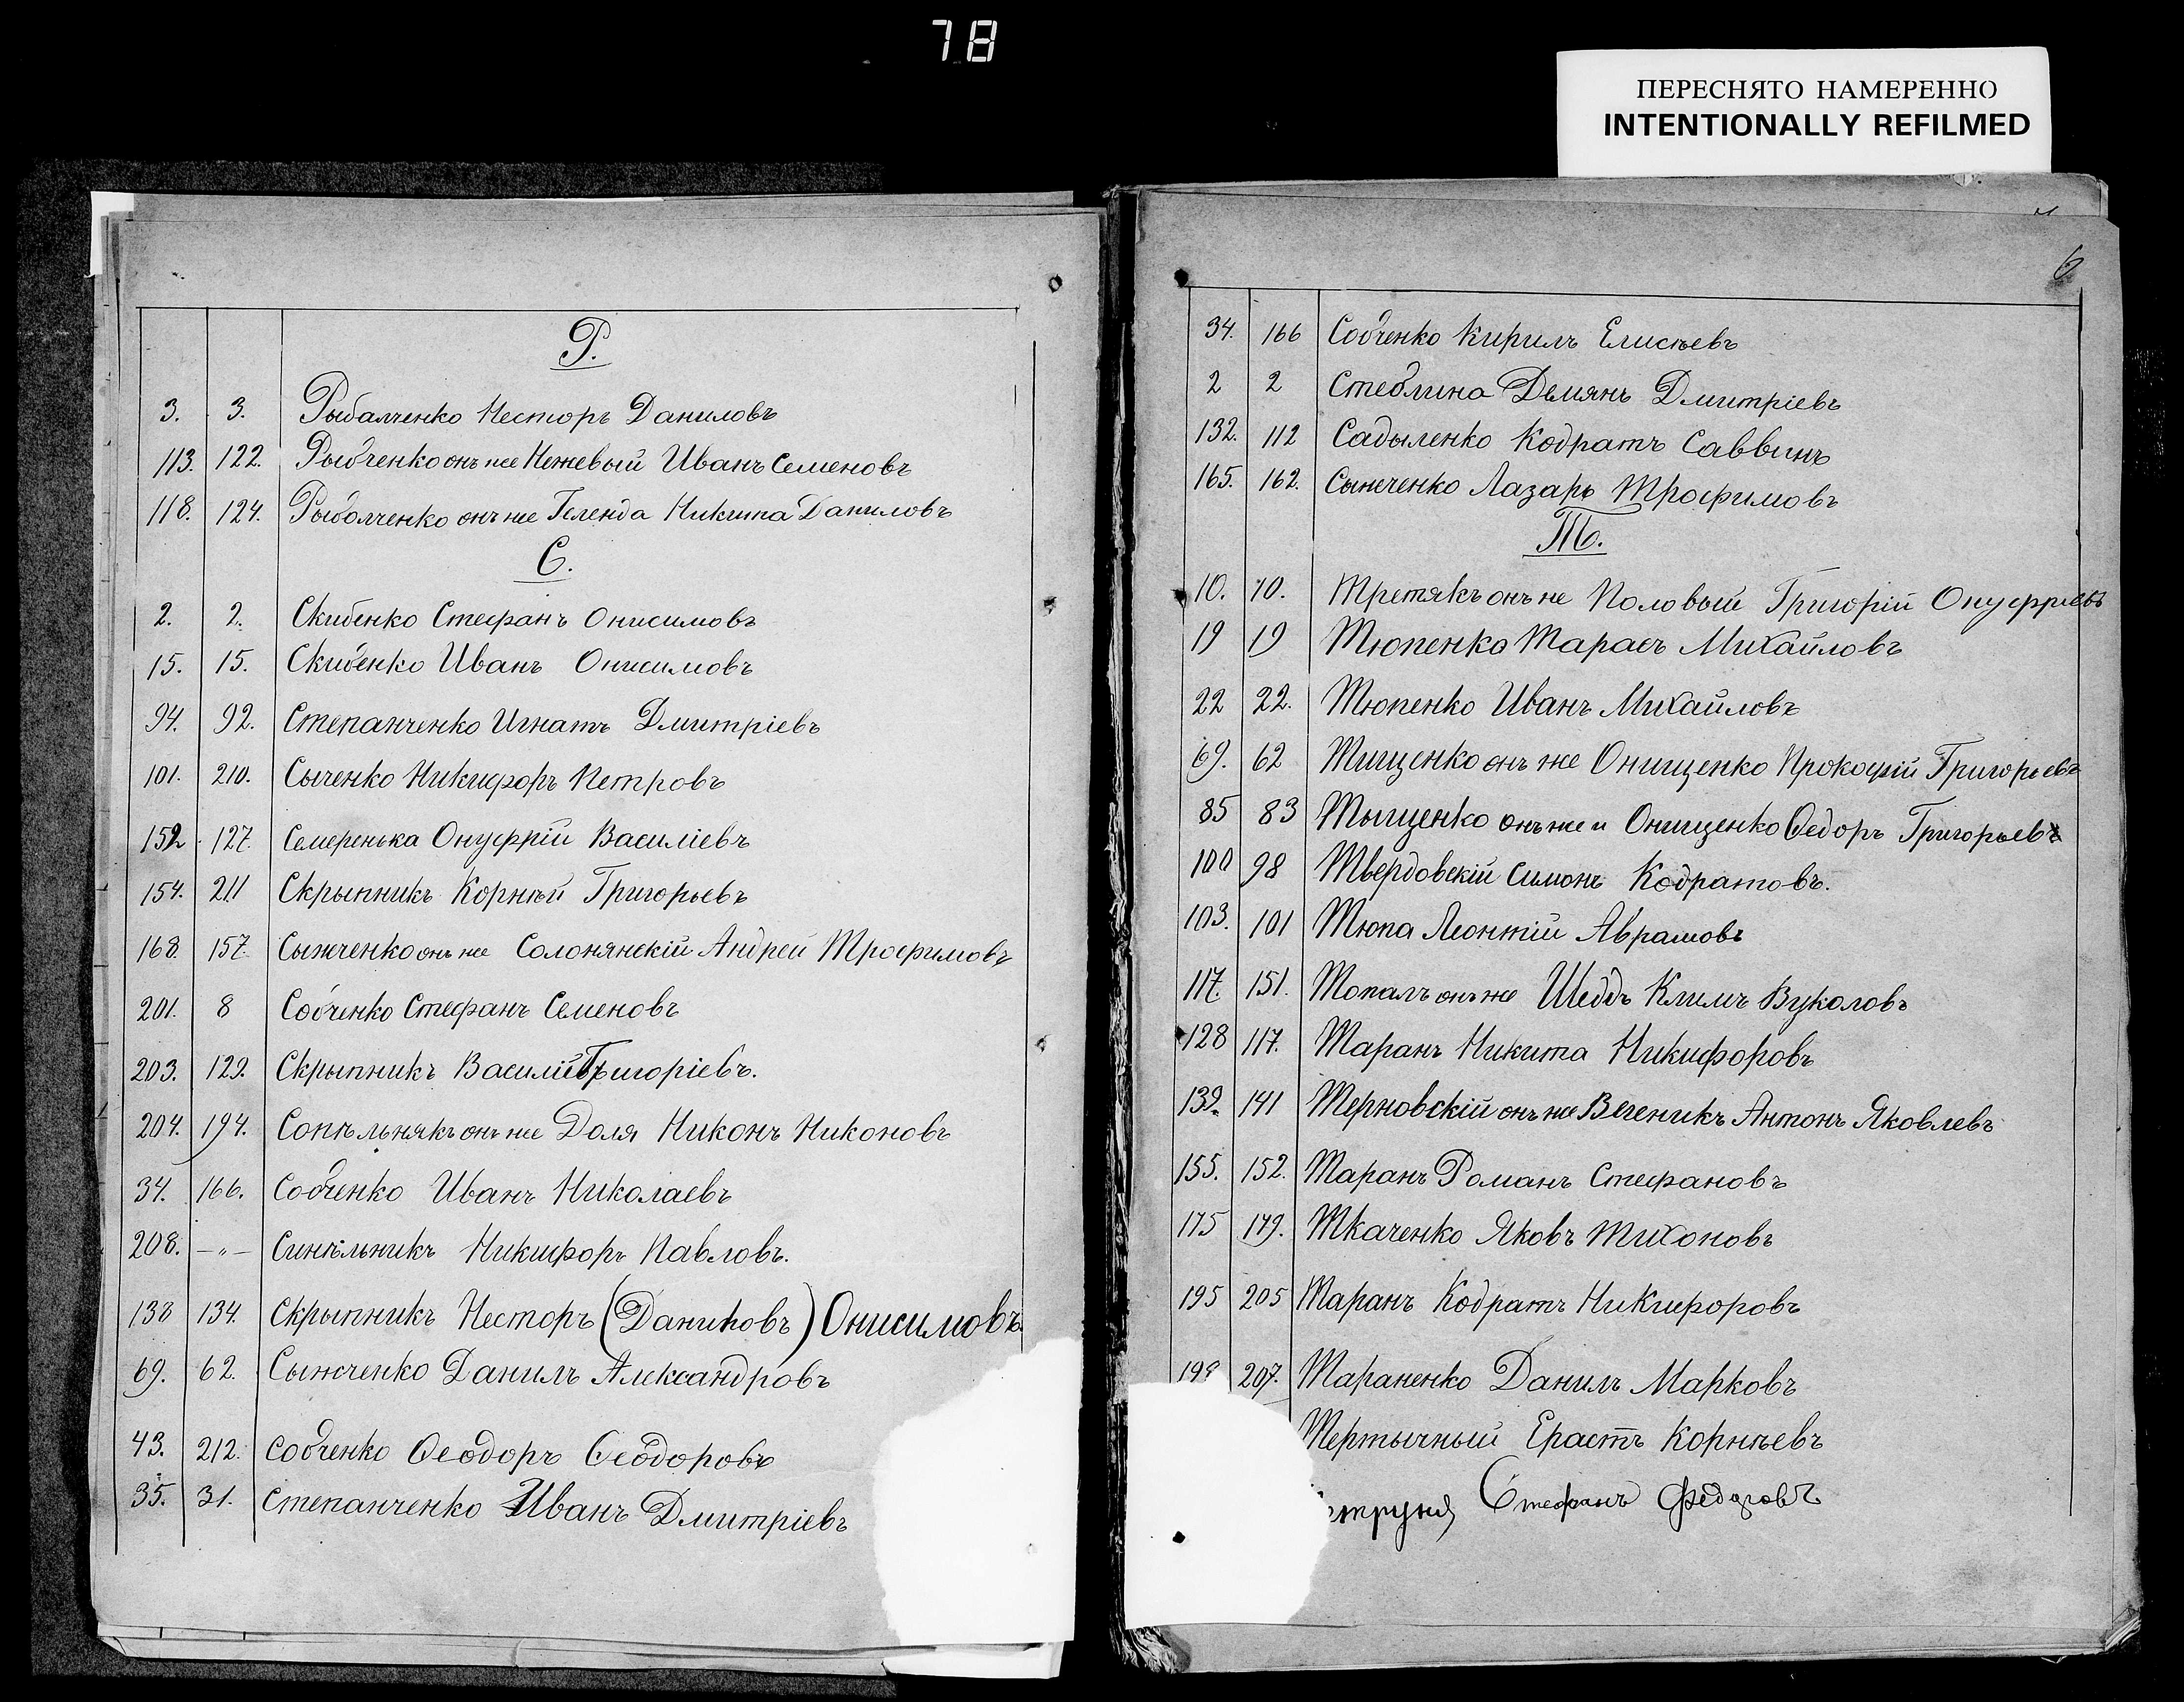 78
ПЕРЕСНЯТО НАМЕРЕННО
INTENTIONALLY REFILMED
Р.
3. 3. Рыбалченко Несторъ Даниловъ
113. 122. Рыбченко онъ же Нежевый Иванъ Семеновъ
118. 124. Рыболченко онъ же Геленда Никита Даниловъ
С.
2. 2. Скибенко Стефанъ Онисимовъ
15. 15. Скибенко Иванъ Онисимовъ
94. 92. Степанченко Игнатъ Дмитріевъ
101. 210. Сыченко Никифоръ Петровъ
152 127. Семеренька Онуфрій Василіевъ
154. 211 Скрыпникъ Корнѣй Григорьевъ
168. 157. Сыженченко онъ же Солонянскій Андрей Трофимовъ
201. 8 Собченко Стефанъ Семеновъ
203. 129. Скрыпникъ Василій Григоріевъ.
204. 194. Сопѣльнякъ онъ же Доля Никонъ Никоновъ
34. 166. Собченко Иванъ Николаевъ
208. —"— Синѣльникъ Никифоръ Павловъ.
138 134. Скрыпникъ Несторъ (Даниловъ) Онисимовъ.
69. 62. Сынченко Данилъ Александровъ
43. 212. Собченко Ѳеодоръ Ѳеодоровъ
35. 31. Степанченко Иванъ Дмитріевъ
6
34. 166 Собченко Кирилъ Елисѣевъ
2 2 Стеблина Демянъ Дмитріевъ
132. 112 Садыленко Кодратъ Саввинъ
165. 162. Сынченко Лазарь Трофимовъ
Т.
10. 10. Третякъ онъ же Половый Григорій Онуфріевъ
19 19 Тюпенко Тарасъ Михайловъ
22 22. Тюпенко Иванъ Михайловъ
69. 62 Тищенко онъ же Онищенко Прокофій Григорьевъ
85 83 Тыщенко онъ же и Онищенко Ѳедоръ Григорьевъ
100 98 Твердовскій Симонъ Кодратовъ.
103. 101 Тюпа Леонтій Аврамовъ
117. 151. Топалъ онъ же Шеддъ Климъ Вуколовъ
128 117. Таранъ Никита Никифоровъ
139. 141 Терновскій онъ же Вегеникъ Антонъ Яковлевъ
155. 152. Таранъ Романъ Стефановъ
175 179. Ткаченко Яковъ Тихоновъ
195 205 Таранъ Кодратъ Никифоровъ
207. Тараненко Данилъ Марковъ
Тертычный Ерастъ Корнѣевъ
Стефанъ Федоровъ